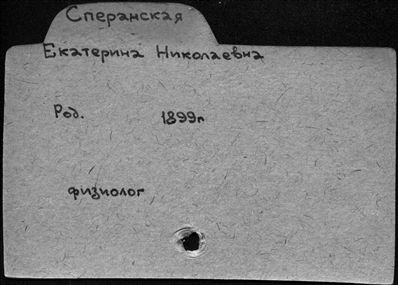 Сперанская
Екатерина Николаевна
Род. 1899г
физиолог